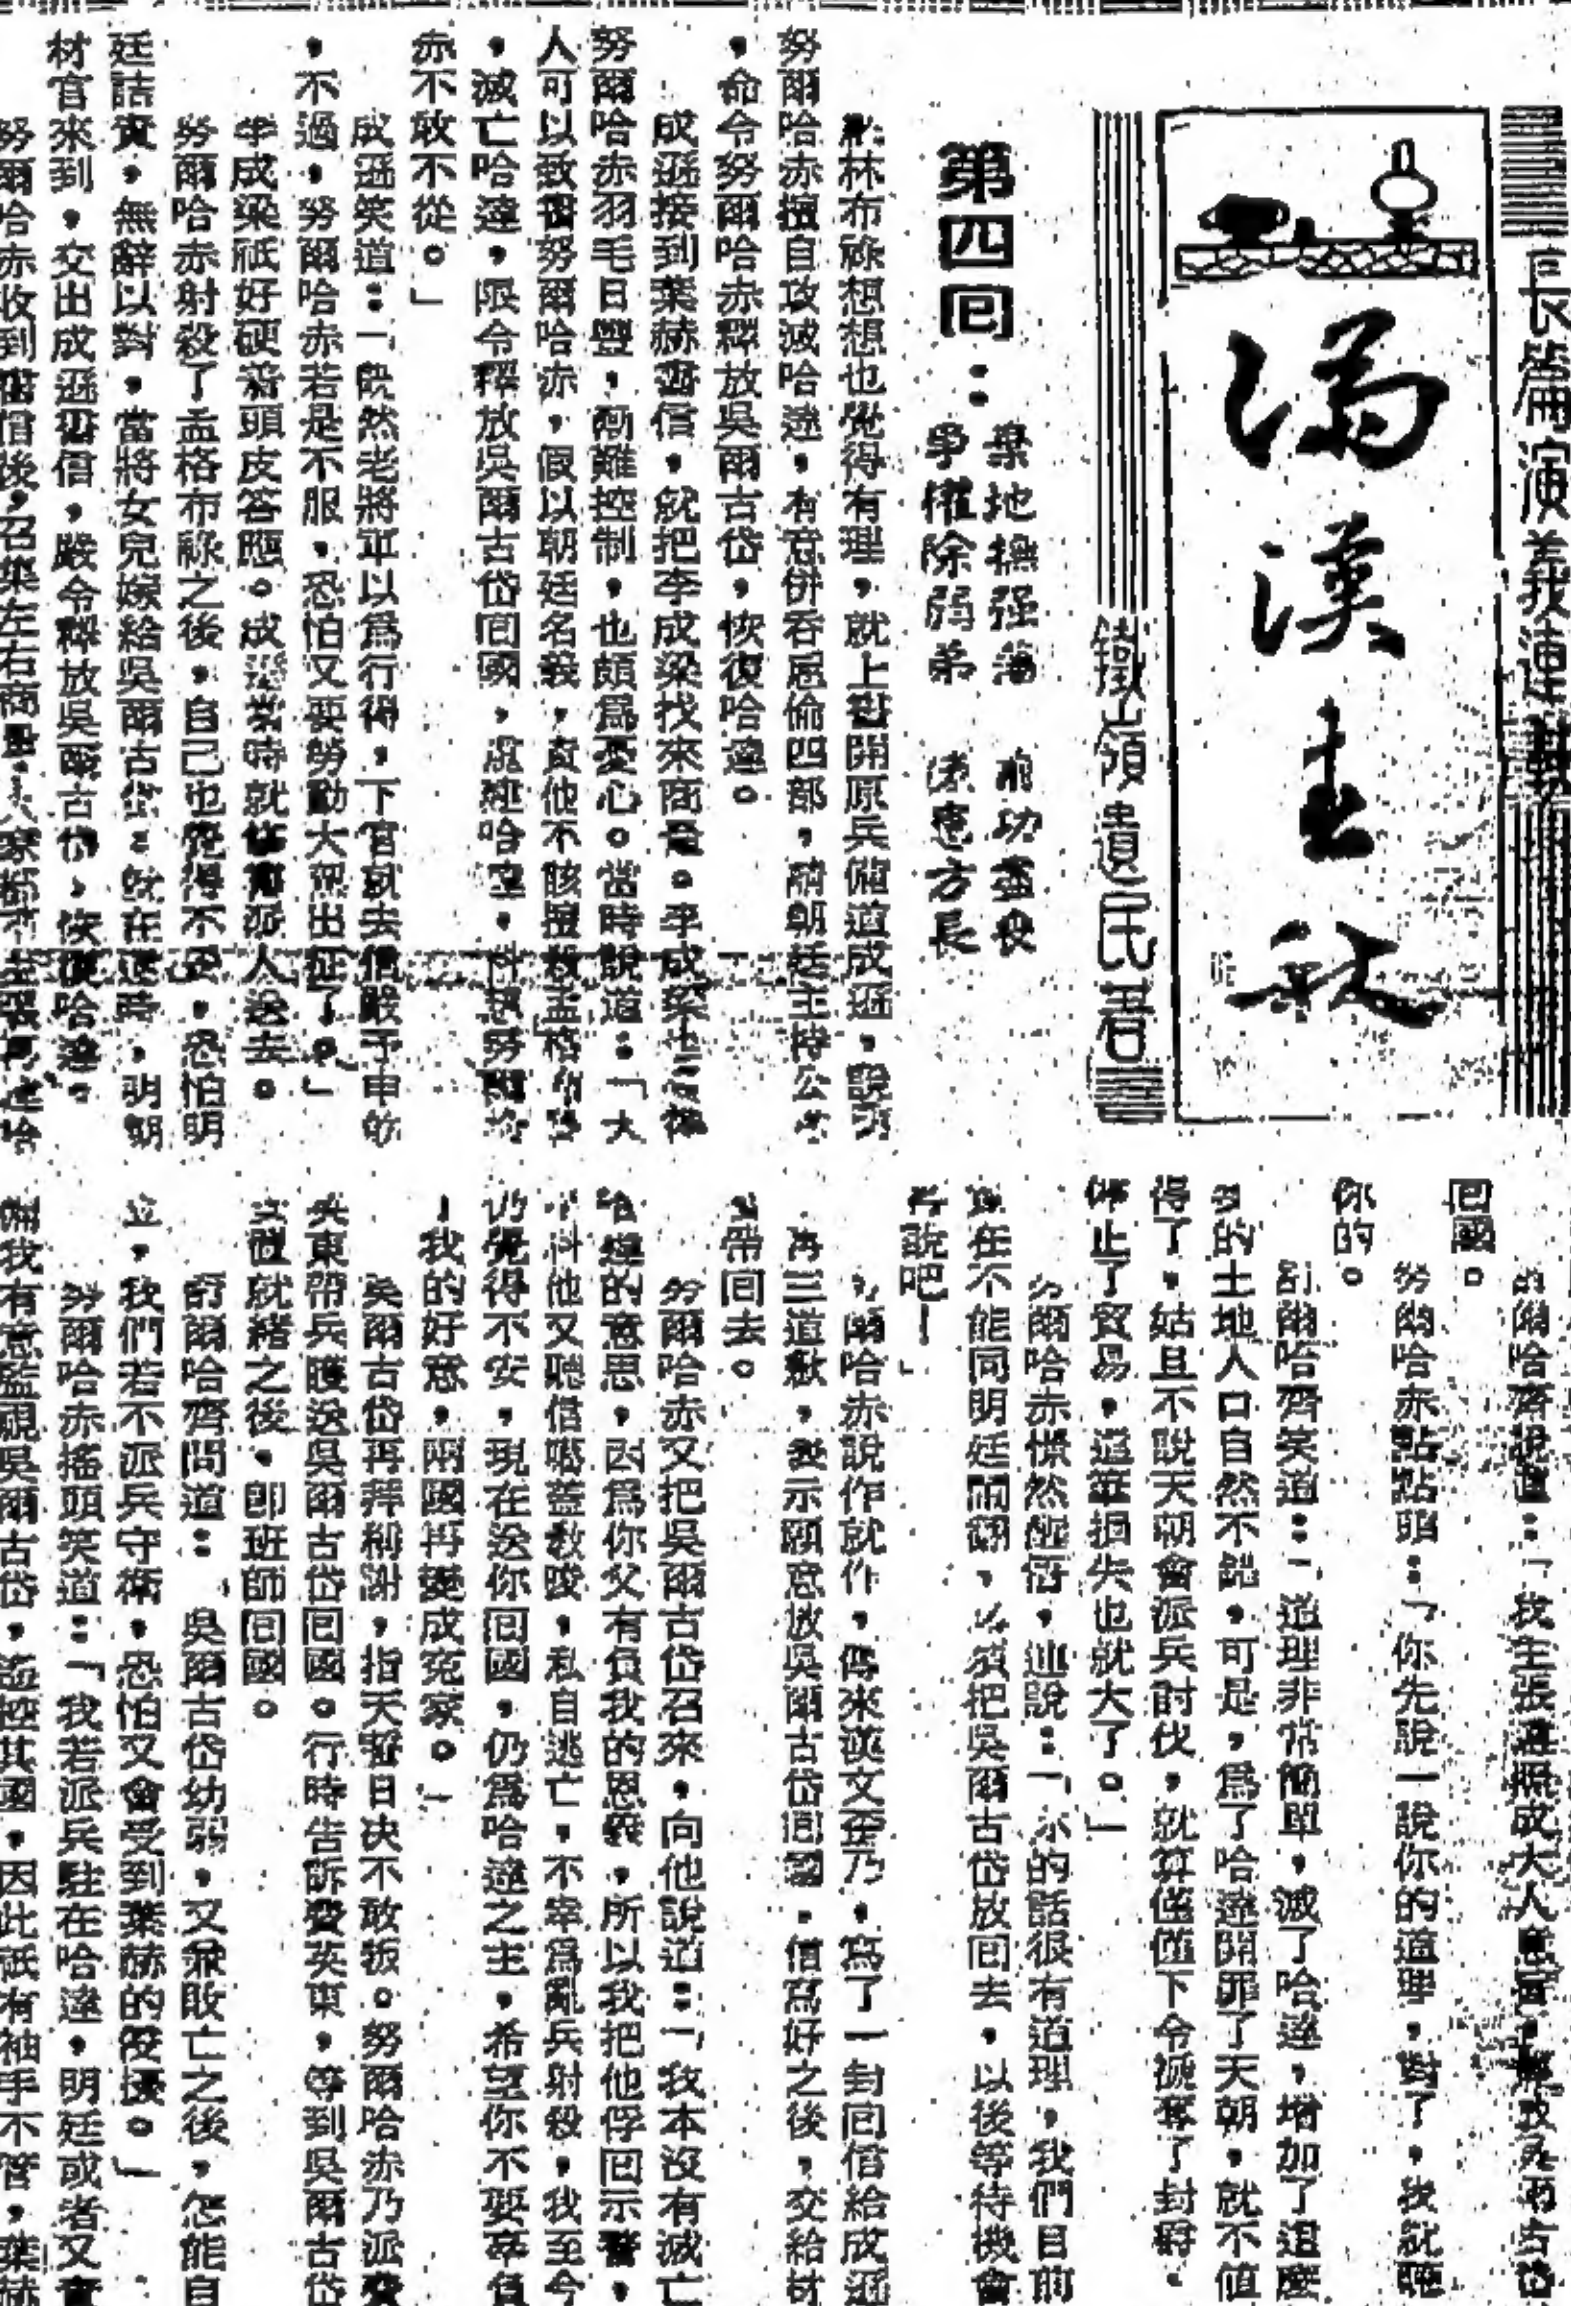 長篇演義連載
滿漢主奴
鐵嶺遺民著
第四回：
棄地撫强藩 前功盡沒
爭權除弱弟 後患方長
布祿想想也覺得有理，就上書開原兵備道成遜，說明
努爾哈赤擅自攻滅哈達，有意併吞扈倫四部，請朝廷主持公道
，命令努爾哈赤釋放吳爾古岱，恢復哈達。
成遜接到葉赫書信，就把李成梁找來商量。李成梁也
努爾哈赤羽毛日豐，漸難控制，也頗爲憂心。當時說道：「大
人可以致書努爾哈赤，假以朝廷名義，責他不該擅殺孟格布祿
，滅亡哈達，限令釋放吳爾古岱回國，處理哈達，料想努爾哈
赤不敢不從。」
成遜笑道：「既然老將軍以爲行得，下官就去信嚴予申飭
，不過，努爾哈赤若是不服，恐怕又要勞動大駕出征了。」
李成梁祇好硬着頭皮答應。成遜當時就修書派人送去。
努爾哈赤射殺了孟格布祿之後，自己也覺得不安，恐怕明
廷詰責，無辭以對，當將女兒嫁給吳爾古岱。就在這時，明朝
材官來到，交出成遜書信，嚴令釋放吳爾古岱，恢復哈達。
努爾哈赤收到書信後，召集左右商量，大家都不主張再建哈
爾哈齊說道：「我主張遵照成大人意旨，釋放吳爾古岱
回國。
努爾哈赤點點頭：「你先說一說你的道理，對了，我就聽
你的。
舒爾哈齊笑道：「道理非常簡單，滅了哈達，增加了這麼
多的土地人口自然不錯，可是，爲了哈達開罪了天朝，就不值
得了，姑且不說天朝會派兵討伐，就算僅僅下令褫奪了封爵，
停止了貿易，這筆損失也就大了。」
努爾哈赤憬然醒悟，連說：「你的話很有道理，我們目前
現在不能同明廷鬧翻，必須把吳爾古岱放回去，以後等待機會
再說吧！」
努爾哈赤說作就作，傳來漢文歪乃，寫了一封回信給成遜
再三道歉，表示願意放吳爾古岱回國，信寫好之後，交給材
官帶回去。
努爾哈赤又把吳爾古岱召來，向他說道：「我本沒有滅亡
哈達的意思，因爲你父有負我的恩義，所以我把他俘回示警，
不料他又聽信噶蓋教唆，私自逃亡，不幸爲亂兵射殺，我至今
仍覺得不安，現在送你回國，仍爲哈達之主，希望你不要辜負
了我的好意，兩國再變成寃家。」
吳爾古岱再拜稱謝，指天誓日決不敢叛。努爾哈赤乃派費
英東帶兵護送吳爾古岱回國。行時告訴費英東，等到吳爾古岱
就緒之後，即班師回國。
舒爾哈齊問道：「吳爾古岱幼弱，又兼敗亡之後，怎能自
立，我們若不派兵守衛，恐怕又會受到葉赫的侵擾。」
努爾哈赤搖頭笑道：「我若派兵駐在哈達，明廷或者又會
我有意監視吳爾古岱，監控其國，因此祇有袖手不管，葉赫